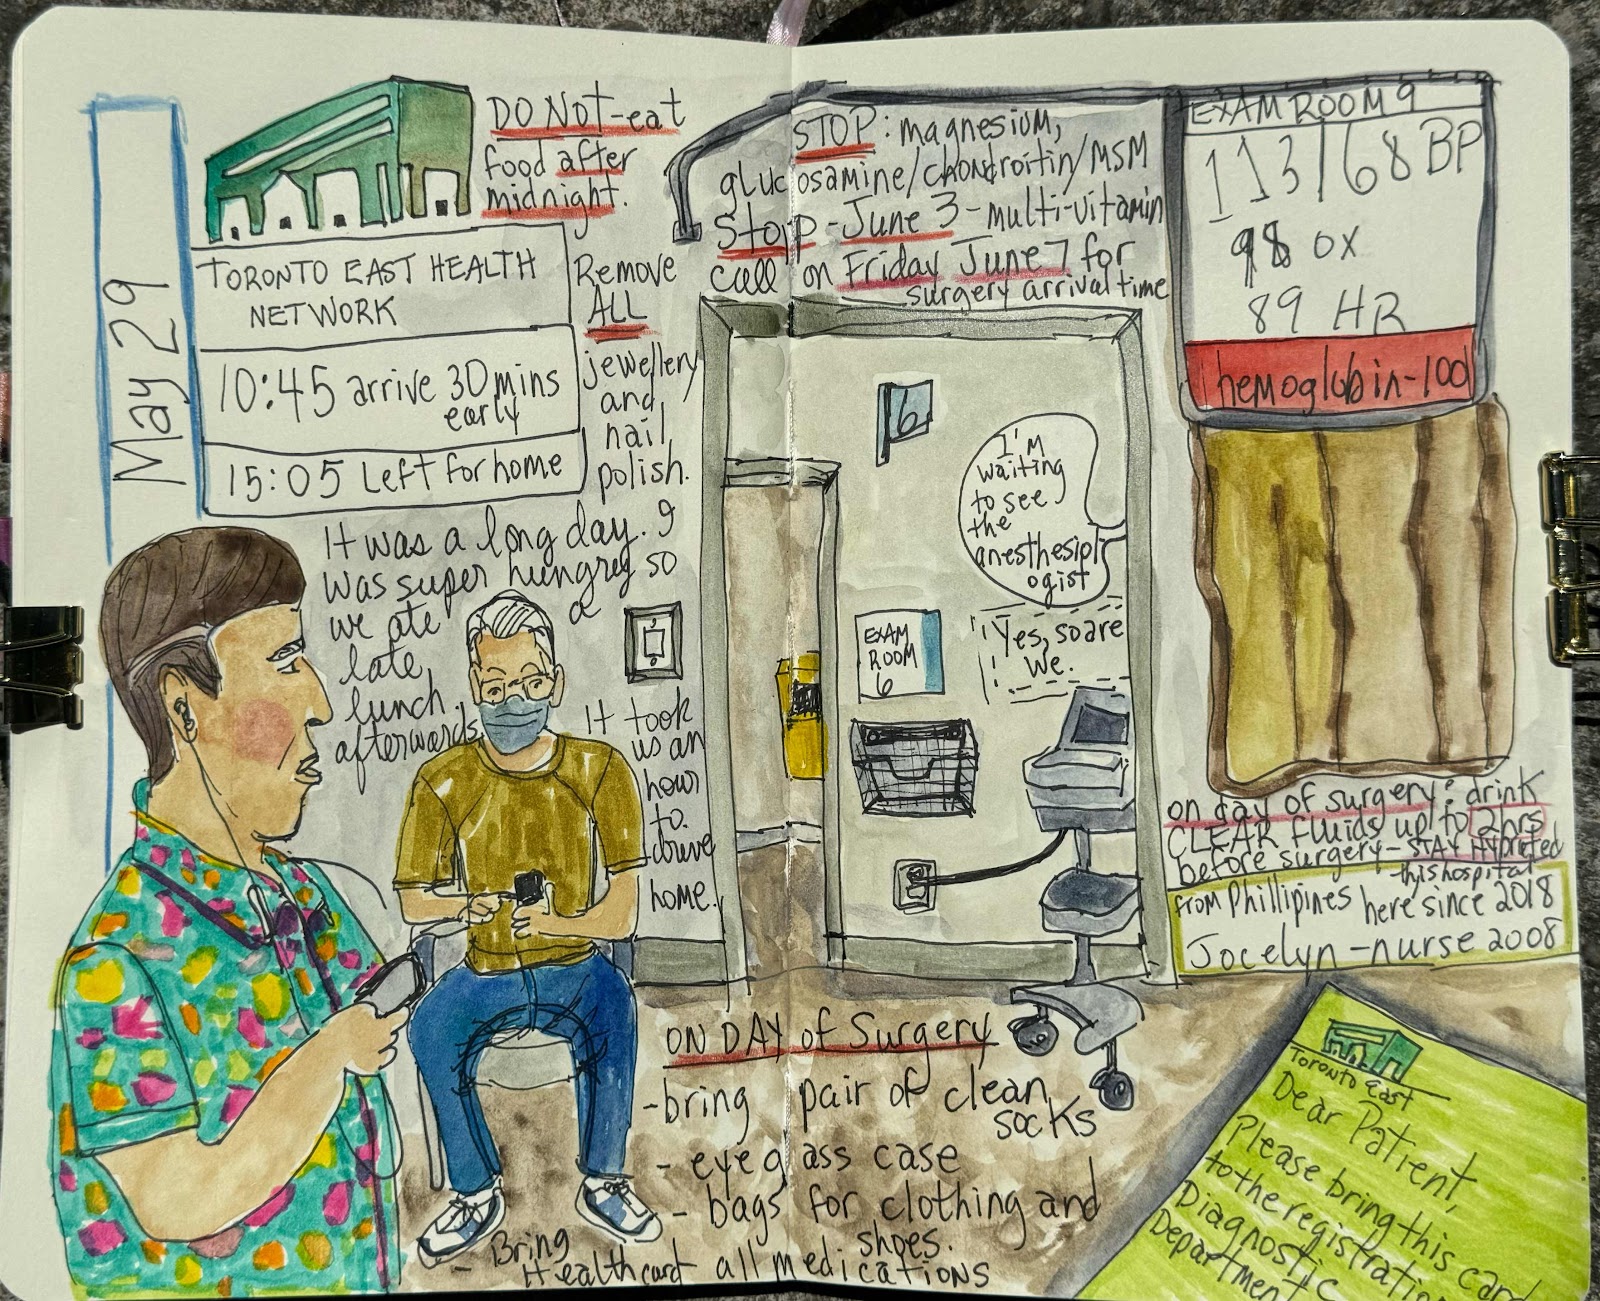 May 29
DO NOT-eat
food after
midnight.
TORONTO EAST HEALTH
NETWORK
10:45 arrive 30 mins
early
15:05 Left for home
Remove
ALL
jewellery
and
nail
polish.
It was a long day. I
was super hungry so
we ate a
late
lunch
afterwards.
It took
us an
hour
to
drive
home.
STOP: magnesium,
glucosamine/chondroitin/MSM
Stopp-June 3-multi-vitamin
call on Friday June 7 for
surgery arrival time
EXAM ROOM 9
113/68 BP
98 OX
89 HR
hemoglobin-100
6
I'M
waiting
to see
the
anesthesiol
ogist
Yes, so are
we.
EXAM
ROOM
6
on day of surgery: drink
CLEAR fluids up to 2hrs
before surgery-STAY Hydrated
-this hospital
FROM Phillipines here since 2018
Jocelyn-nurse 2008
ON DAY of Surgery
-bring pair of clean
socks
- eyeglass case
- bags for clothing and
shoes.
- Bring
Healthcard all medications
Toronto East
Dear Patient,
Please bring this card
to the registration
Diagnostic
Department